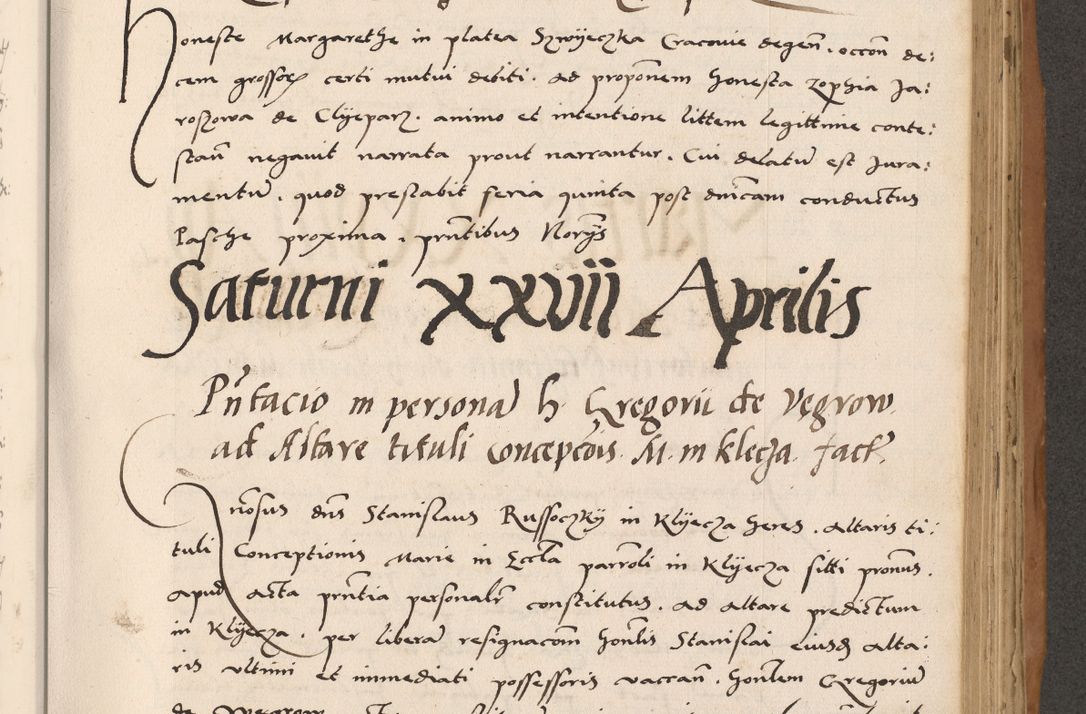 honeste Margarethe in platea Szwyeczka Cracovie degen. occon de:
cem grossor certi mutui debiti. ad proponem honesta Zophia Ja:
roszowa de Clyeparz. animo et intentione littem legittime conte:
stan negavit narrata prout narrantur. Cui delatu est Jura:
mentu. quod prestabit feria quinta post dnicam conductus
Pasche proxima. pntibus Norys
Saturni XXVII Aprilis
Pntacio in persona h. Gregorii de Vegrow
ad Altare tituli Concepcois. M. in Klecza. fact.
Gnosus dns Stanislaus Russoczky in Klyecza heres. Altaris ti:
tuli Conceptionis Marie in Eccla parroli in Klyecza sitti pronus.
apud acta pntia personalr constitutus. ad altare predictum
in Klyecza. per libera resignacom honlis Stanislai eiusd alta:
ris ultimi et immediati possessoris vaccan. honlem Gregoriu
de Wegrow